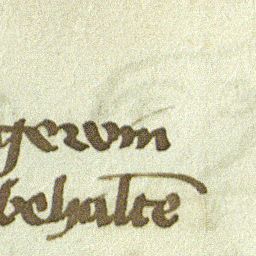 gervm
behalte